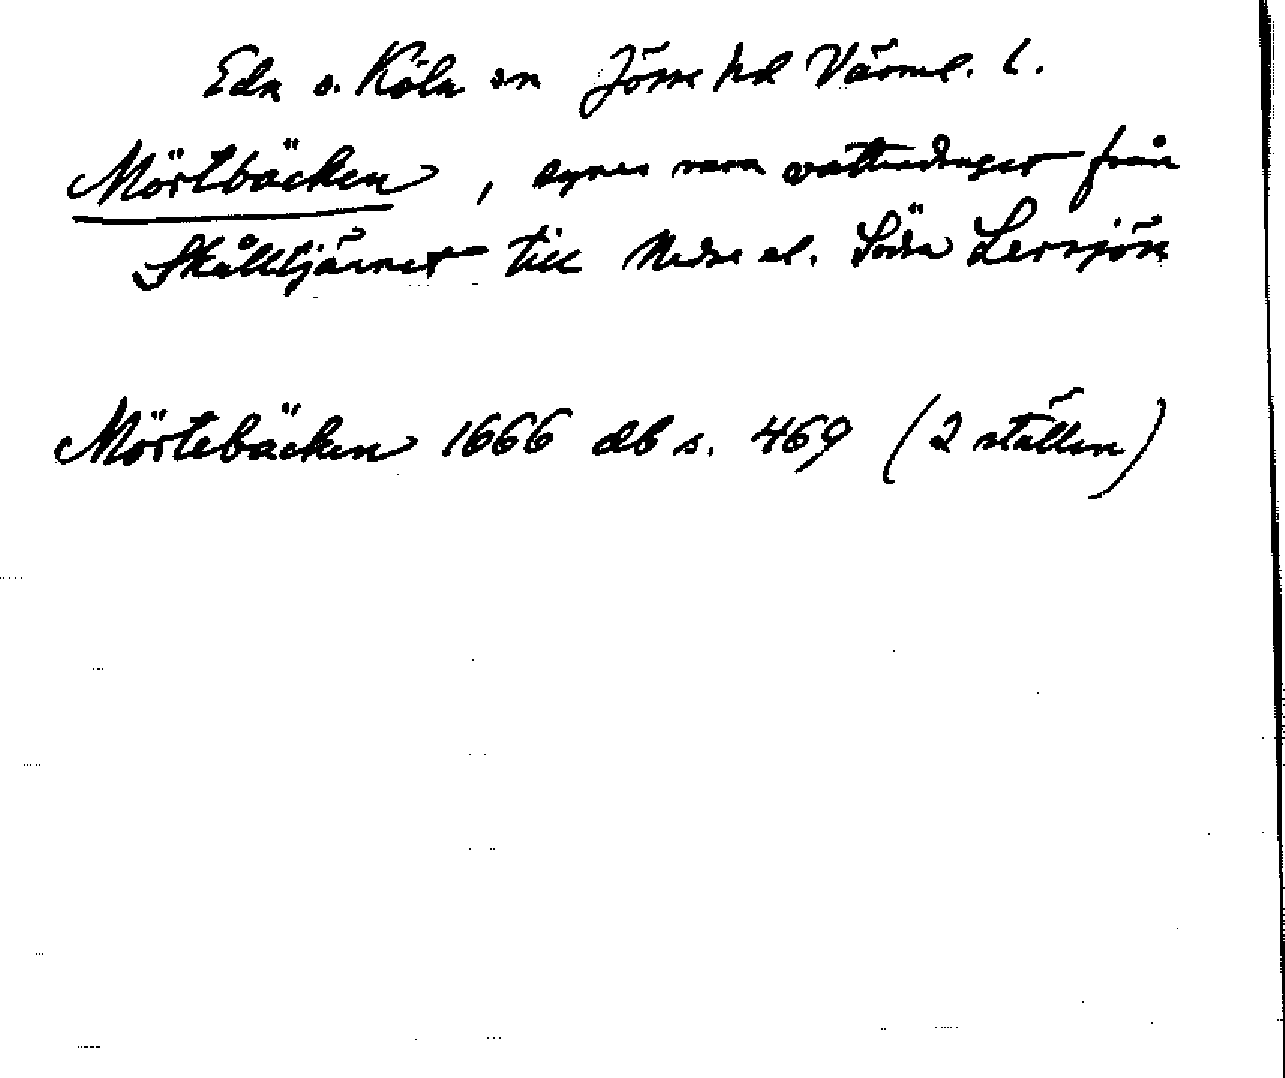 Eda o. Köla sn Jösse hd Värml. l.
Mörtbäcken, synes vara vattendraget från
Skålltjärnet till Nedre el. Södra Lersjön
Mörtebäcken 1666 db s. 469 (2 ställen)